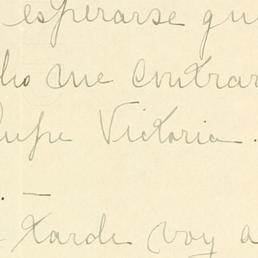 esperarse qu
ho me contrar
upe Victoria.
. —
tarde voy a